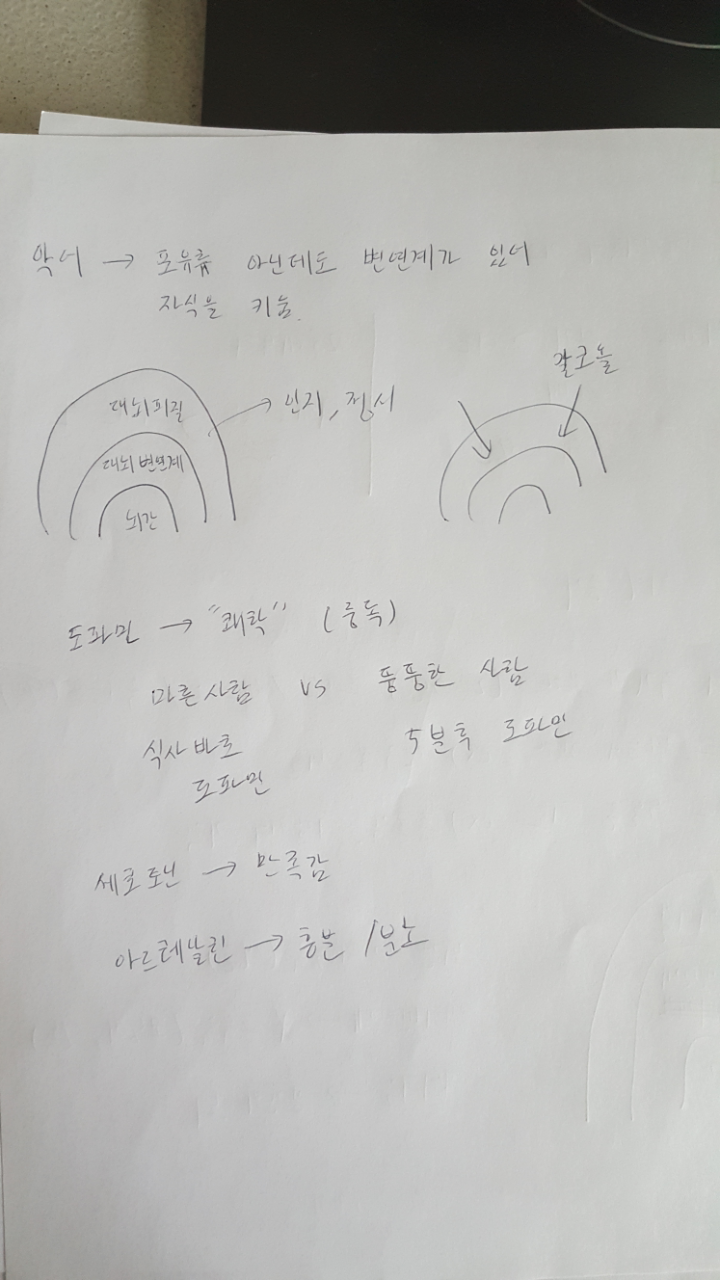 악어 → 포유류 아닌데도 변연계가 있어
자식을 키움.
대뇌피질
→ 인지, 정서
대뇌 변연계
뇌간
알코올
도파민 → "쾌락" (중독)
마른사람 vs 뚱뚱한 사람
식사 바로
도파민
5분후 도파민
세로토닌 → 만족감
아르레날린 → 흥분 / 분노